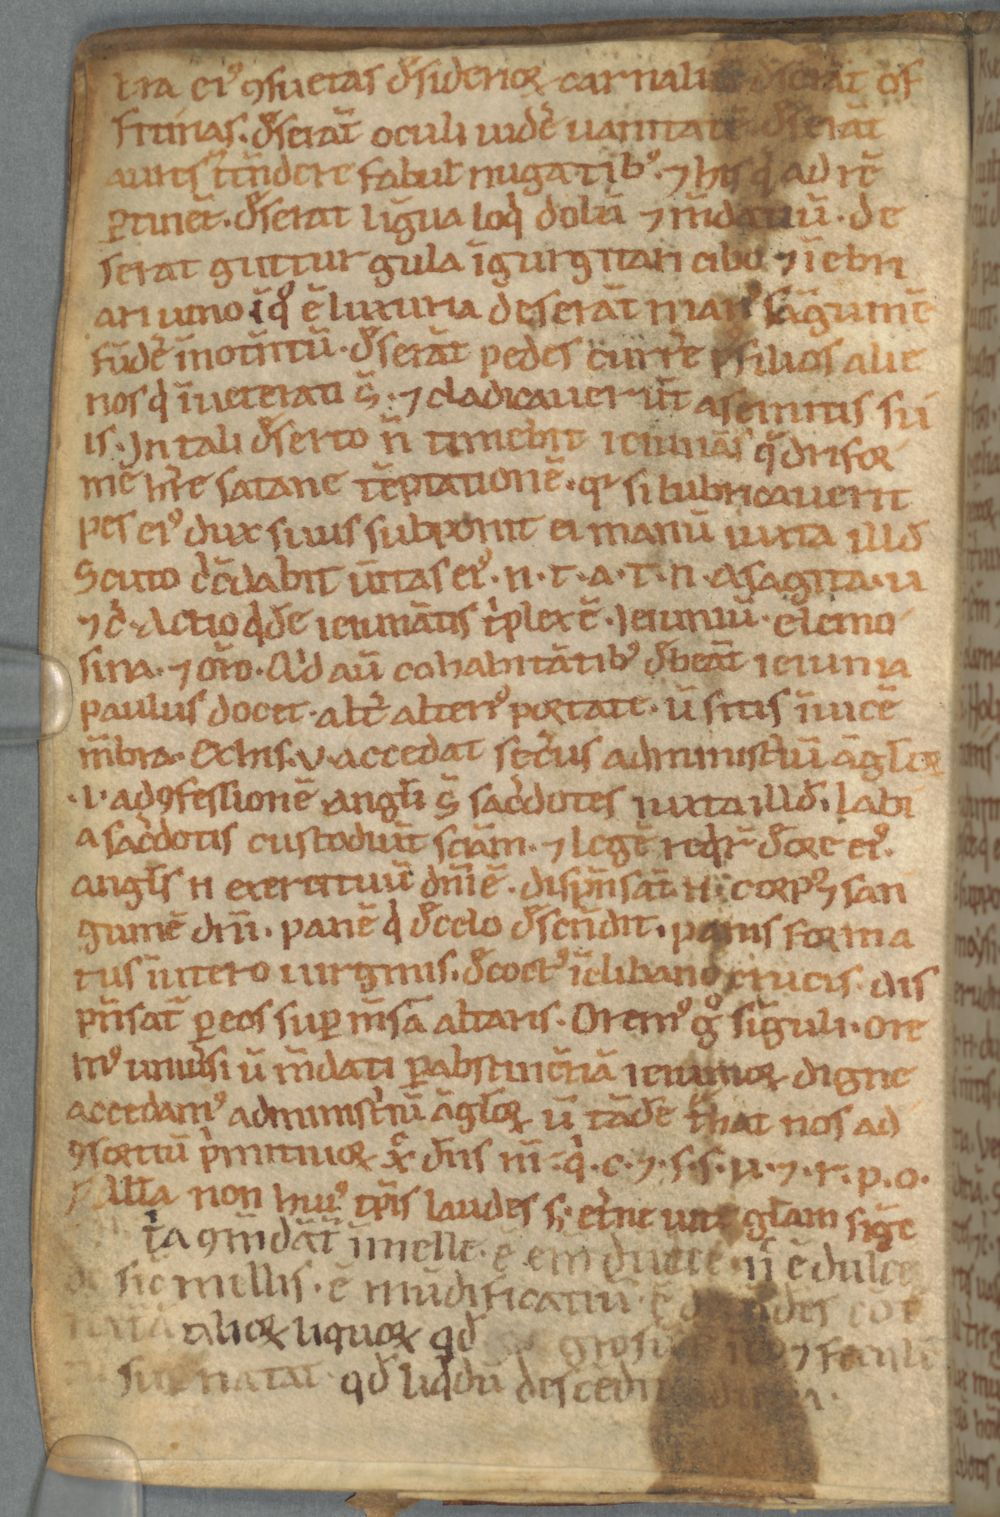 t̄ra ei᷒ ꝯsuetas d̓siderioꝝ carnaliū d̓serāt of
fitinas. d̓serāt oculi uid̓e uanitatē. d̓serāt
aures ītēdere fabul̵ nugatib᷒. ⁊ his q̓ ad rē
ꝑtinēt. d̓serat līgua loq̓ dolū ⁊ m̄datiū. de
serat guttur gula īgurgitari cibo ⁊ īebri
ari uino īq̊ ē luxuria deserāt man᷒ sāguinē
fūd̓e īnotētū. d̓serāt pedes currē p̓ filios alie
nos q̓ īueterati s̄. ⁊ cladicauerūt a semitis su
is. In tali d̓serto n̄ timebit ieiunās q̓drifor
mē hr̄e satane tēptationē. qr si lubricauerit
pes ei᷒ dux siuis subponit ei manū iuxta illd̓
Scuto c̓c̄dabit ūitas ei᷒. n. t. a. t. n. A sagita. u
⁊c̓. Actio q̓dē ieiunātis t̓plex ē. Ieiuniū. elemo
sina. ⁊ or̄o. Ad aū cohabitātib᷒ d̓beāt ieiunia
paulus docet. alt̓ alteri᷒ portate. ū sitis īuicē
m̄bra. Echis. v. accedat sec̓us administ̓iū āgloꝝ
.i. ad ꝯfessionē. angl̵i s̄ sac̓dotes iuxta illd̓. labi
a sac̓dotis custodiūt sciām. ⁊ legē req̓r̄t d̓ore ei᷒.
angl̵s n̄ exercituū dn̄i ē. disp̄nsāt n̄. corp᷒ ⁊ san
guinē dn̄i. panē q̓ d̓celo d̓scēdit. panis forma
tus ī utero uirginis. d̓coct᷒ ī clibano crucis. dis
pn̄sāt ꝑeos suꝑ m̄sā altaris. Orem᷒ g̊ sīguli. ore
m᷒ uniūsi ū m̄dati ꝑabstinētiā ieiunioꝝ digne
accedam᷒ administ̓iū āgloꝝ ū tād̓e t̄hat nos ad
ꝯsortiū p̓mitiuoꝝ x̄ dn̄s nr̄. q̓. c. ⁊. s. s. u. ⁊. r. p. o.
All̵a non hui᷒ tp̄is laudes s. et̓ne uite gl̄am sig̓
t̄a ꝯm̄dat̄ īmelle. ē em̄ dulce. n̄ ē dulce
sic mellis. ē mūdificatiū. ē
alioꝝ liquoꝝ qd̓ grosiū
natat. qd̓ liq̓dū descēdit